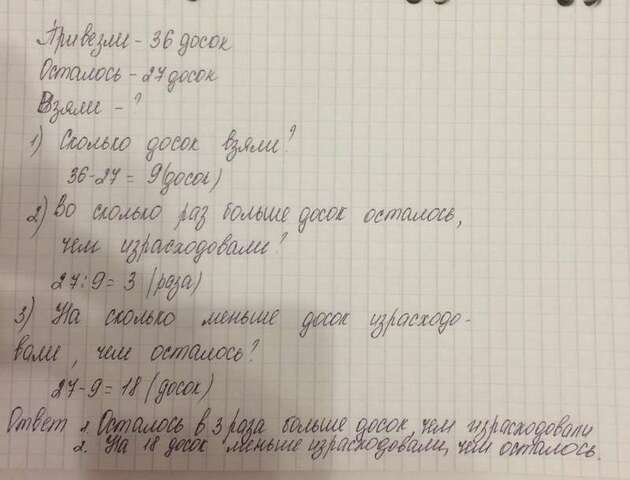 Привезли - 36 досок
Осталось - 27 досок
Взяли - ?
1) Сколько досок взяли?
36-27 = 9(досок)
2) Во сколько раз больше досок осталось,
чем израсходовали?
27:9= 3 (раза)
3) На сколько меньше досок израсходо-
вали, чем осталось?
27-9=18 (досок)
Ответ 1. Осталось в 3 раза больше досок, чем израсходовали
2. На 18 досок меньше израсходовали, чем осталось.